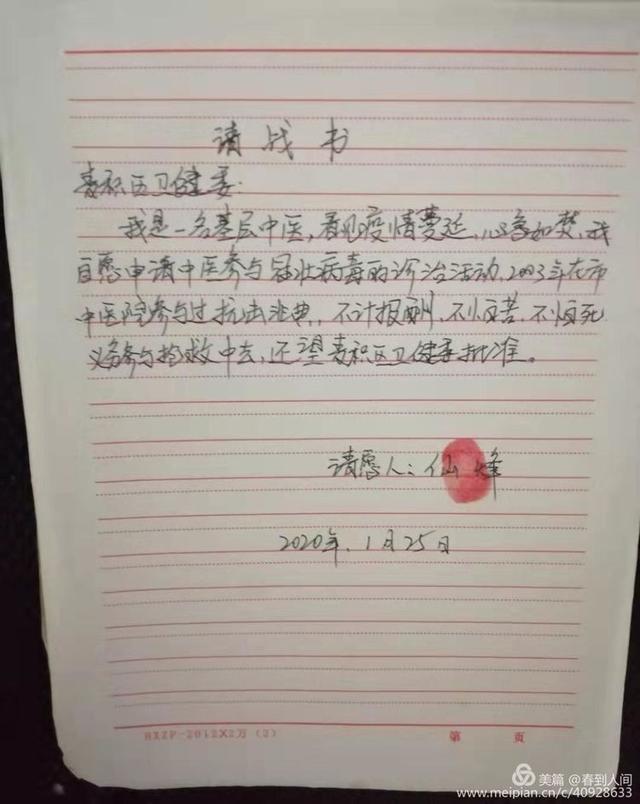 请战书
麦积区卫健委:
我是一名基层中医,看见疫情蔓延,心急如焚,我
自愿申请中医参与冠状病毒的诊治活动,2003年在市
中医院参与过抗击非典,不计报酬,不怕苦,不怕死
义务参与抢救中去,还望麦积区卫健委批准。
请愿人:仙峰
2020年.1月25日
HXZP-2012X2万(2) 第 页
美篇@春到人间
www.meipian.cn/c/40928633